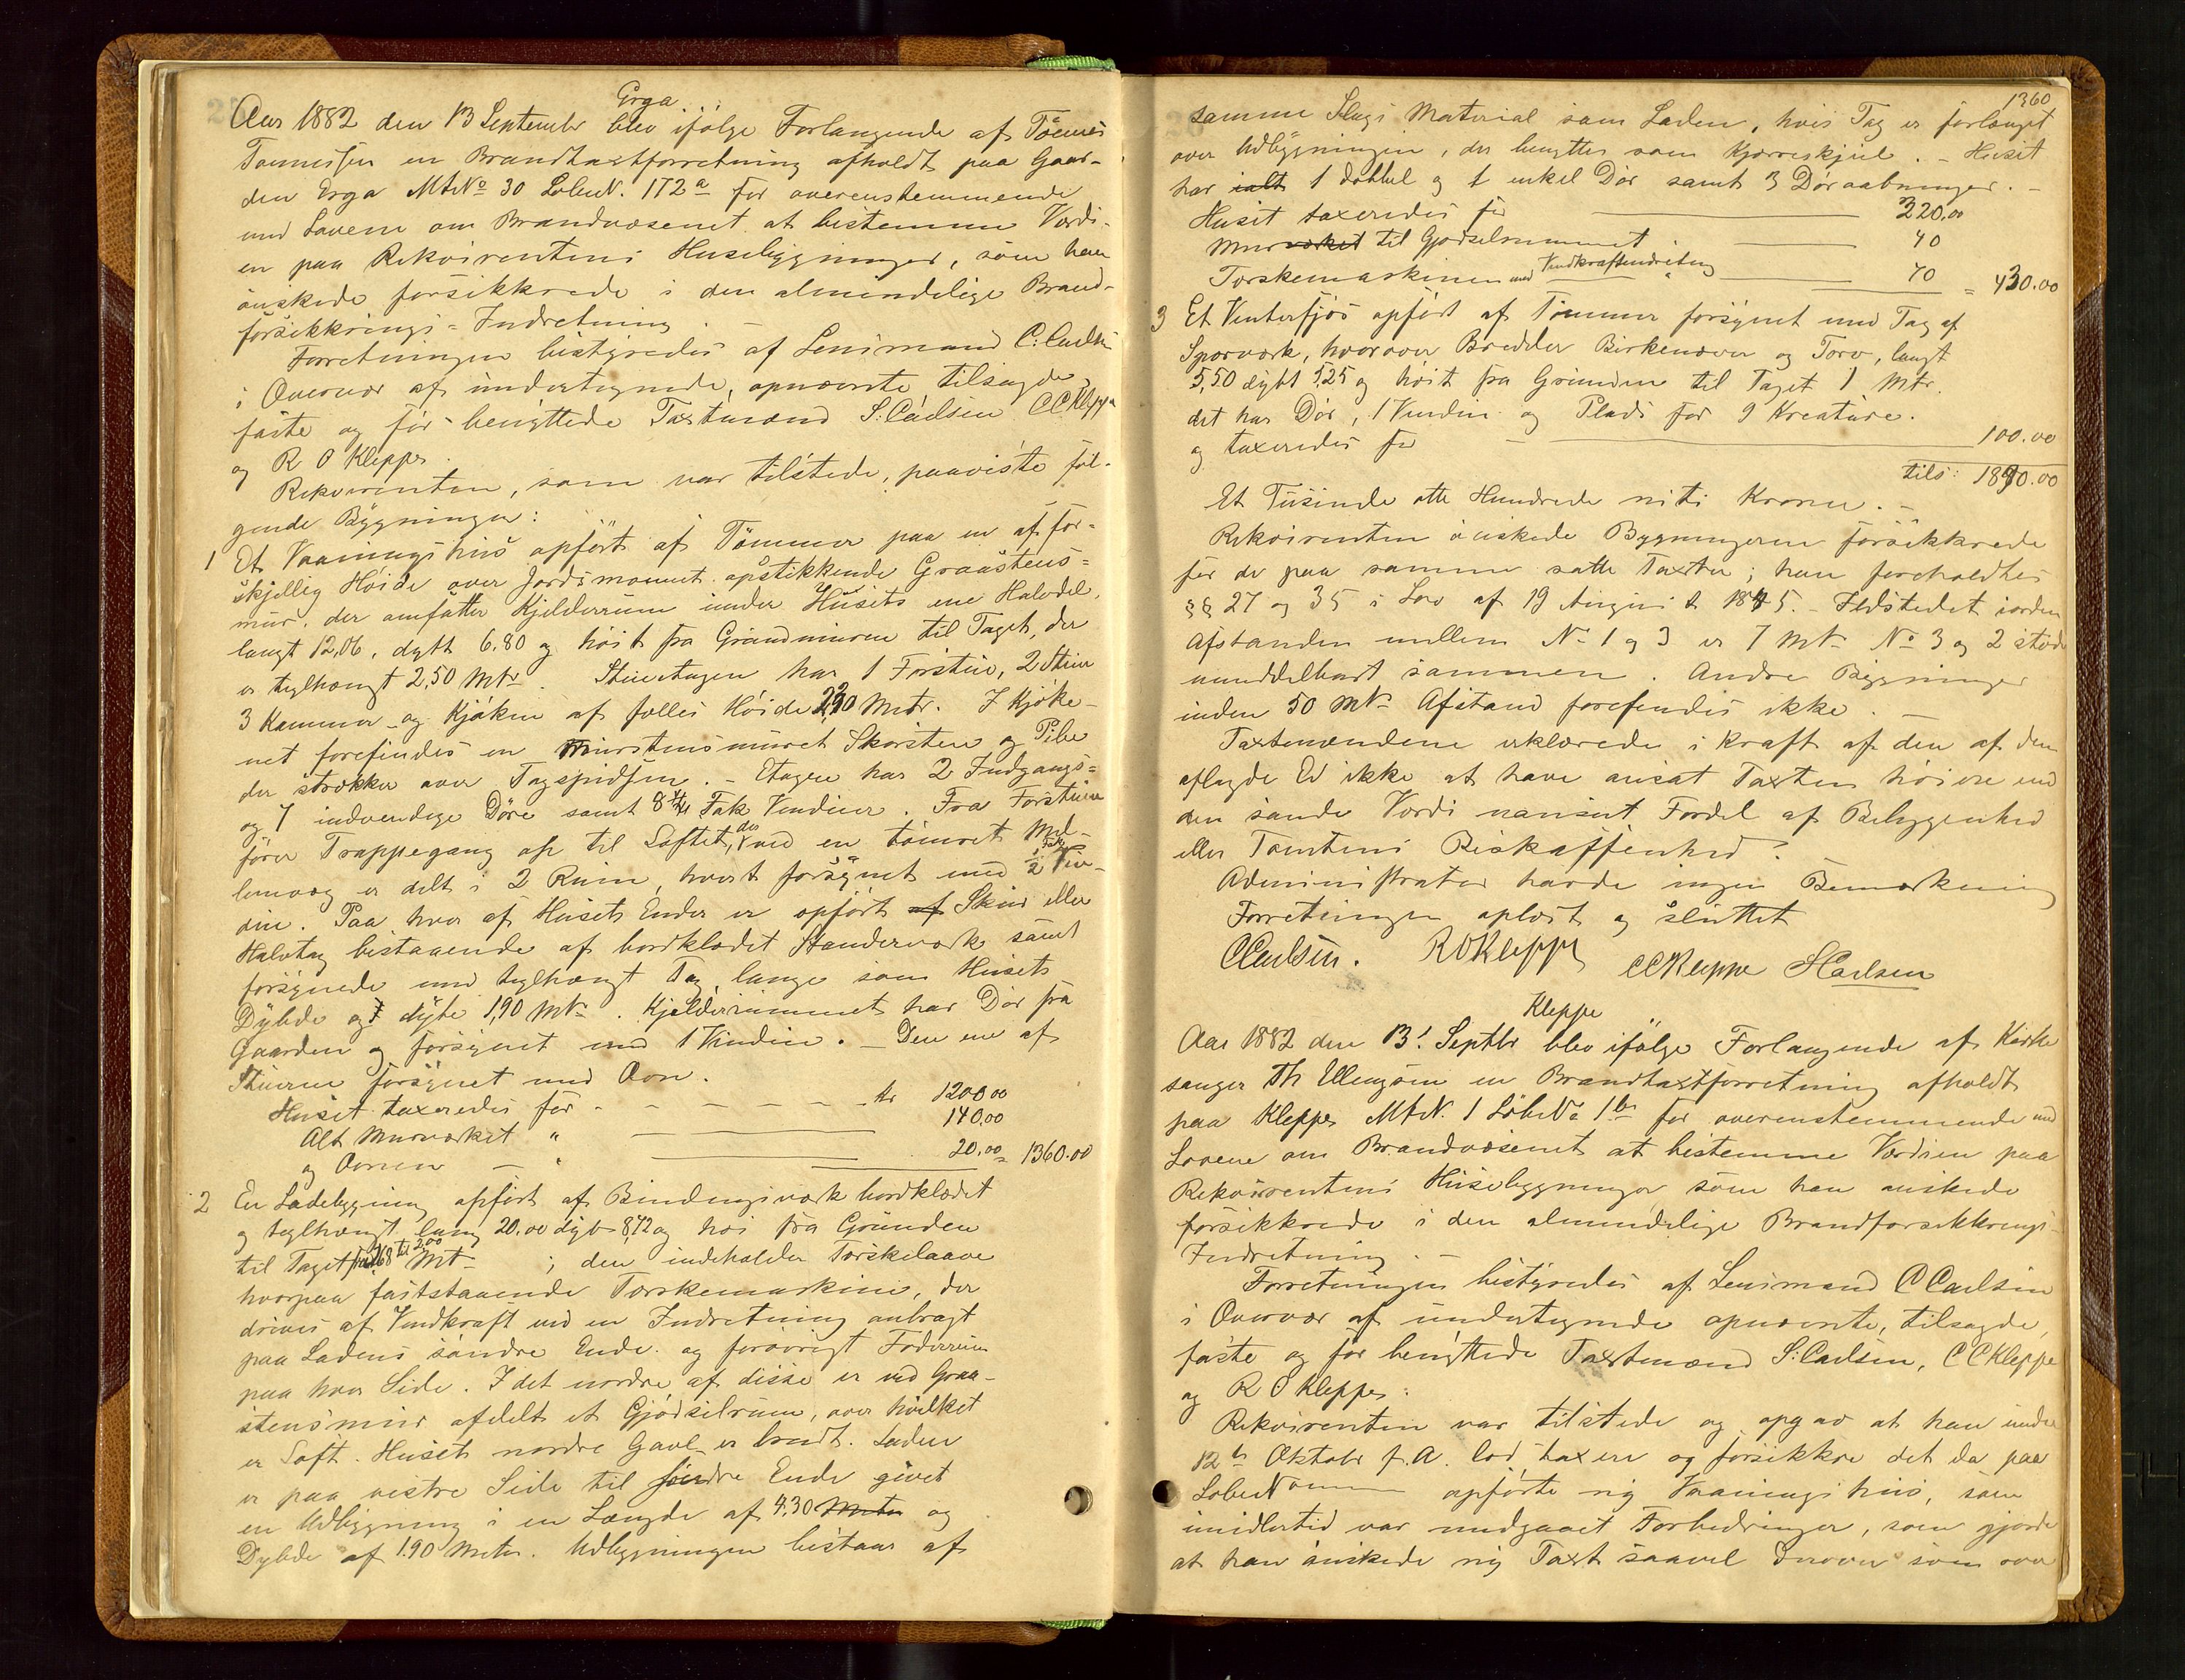 Erga
Aar 1882 den 13 September blev ifölge Forlangende af Tönnes
Tönnesen en Brandtaxtforretning afholdt paa Gaar-
den Erga MtNo 30 LöbeN. 172a for overensstemmende
med Lovene om Brandvæsenet at bestemme Værdi-
en paa Rekvirentens Husebygninger, som han
önskede forsikkrede i den almindelige Brand-
forsikkrings-Indretning. —
Forretningen bestyredes af Lensmand C. Carlsen
i Overvær af undertegnede, opnævnte tilsagde,
faste og för benyttede Taxtmænd S. Carlsen CCKleppe
og R O Kleppe.
Rekvirenten, som var tilstede, paaviste föl-
gende Bygninger:
1 Et Vaaningshus opfört af Tömmer paa en af for-
skjellig Höide over Jordsmonnet opstikkende Graastens-
mur, der omfatter Kjelderrum under Husets ene Halvdel,
langt 12,06, dybt 6,80 og höit fra Grundmuren til Taget, der
er teglhængt 2,50 Mtr. Stueetagen har 1 Forstue, 2 Stuer
3 Kammer og Kjökken af fælles Höide 2,20 Mtr. I Kjökke-
net forefindes en Murstensmuret Skorsten og Pibe
der strækker over Tagspidsen. - Etagen har 2 Indgangs-
og 7 indvendige Döre samt 8 4/4 Fak Vinduer. Fra Forstuen
förer Trappegang op til Loftet, der ved en tömret Mel-
lemvæg er delt i 2 Rum, hvert forsynet med 1/2 Fak Vin-
due. Paa hver af Husets Ender er opfört af Skur eller
Halvtag bestaaende af bordklædet Standerværk samt
forsynede med teglhængt Tag, lange som Husets
Dybde og dybe 1,90 Mtr. Kjelderrummet har Dör fra
Gaarden og forsynet med 1 Vindue. — Den ene af
Stuerne forsynet med Ovn.
Huset taxeredes for - - - - - - Kr 1200.00
Alt Murværket " — 140.00
og Ovnen — " — 20.00 = 1360.00
2 En Ladebygning opfört af Bindingsværk bordklædet
og teglhængt lang 20.00 dyb 8,72 og höi fra Grunden
til Taget fra 2,68 til 2,00 Mtr ; den indeholder Tærskelaave
hvorpaa faststaaende Tærskemaskine, der
drives af Vindkraft ved en Indretning anbragt
paa Ladens söndre Ende og forövrigt Foderrum
paa hver Side. I det nordre af disse er ved Graa-
stensmur afdelt et Gjödselrum, over hvilket
er Loft. Husets nordre Gavl er brudt. Laden
er paa vestre Side til söndre Ende givet
en Udbygning i en Længde af 4.30 Meter og
Dybde af 1.90 Meter. Udbygningen bestaar af
1360
samme Slags Material som Laden, hvis Tag er forlænget
over Udbygningen, der benyttes som Kjærreskjul. - Huset
har ialt 1 dobbel og 1 enkel Dör samt 3 Döraabninger. -
Huset taxeredes for — 320.00
Murværket til Gjödselrummet — 40
Tærskemaskinen med Vindkraftindretning — 70 = 430.00
3 Et Vinterfjös opfört af Tömmer forsynet med Tag af
Sperværk, hvorover Bredder Birkenæver og Torv, langt
5,50 dybt 5,25 og höit fra Grunden til Taget 1 Mtr.
det har Dör, 1 Vindue og Plads for 9 Kreature.
og taxeredes for — 100.00
tils: 1890.00
Et Tusinde otte Hundrede niti Kroner. -
Rekvirenten önskede Bygningerne forsikkrede
for de paa samme satte Taxter; han foreholdtes
§§ 27 og 35 i Lov af 19 August 1845. - Ildstedet iorden
Afstanden mellem No 1 og 3 er 7 Mtr No 3 og 2 stöde
umiddelbart sammen. Andre Bygninger
inden 50 Mtr Afstand forefindes ikke. —
Taxtmændene erklærede i Kraft af den af dem
aflagde Ed ikke at have ansat Taxten höiere end
den sande Værdi uanseet Fordel af Beliggenhed
eller Tomtens Beskaffenhed.
Administrator havde ingen Bemærkning
Forretningen oplæst og sluttet
CCarlsen. ROKleppe CCKleppe SCarlsen
Kleppe
Aar 1882 den 13. Septbr blev ifölge Forlangende af Kirke
sanger Th Ellingsen en Brandtaxtforretning afholdt
paa Kleppe MtN. 1 LöbeNo 1b for overensstemmende med
Lovene om Brandvæsenet at bestemme Værdien paa
Rekvirentens Husebygninger som han önskede
forsikkrede i den almindelige Brandforsikkrings-
Indretning. —
Forretningen bestyredes af Lensmand C Carlsen
i Overvær af undertegnede opnævnte, tilsagde,
faste og för benyttede Taxtmænd S. Carlsen, C C Kleppe
og R O Kleppe.
Rekvirenten var tilstede og opgav at han under
12te Oktobr f.A. lod taxere og forsikkre det da paa
LöbeNommer opförte ny Vaaningshus, som
imidlertid var undgaaet Forbedringer, som gjorde
at han önskede ny Taxt saavel derover som over